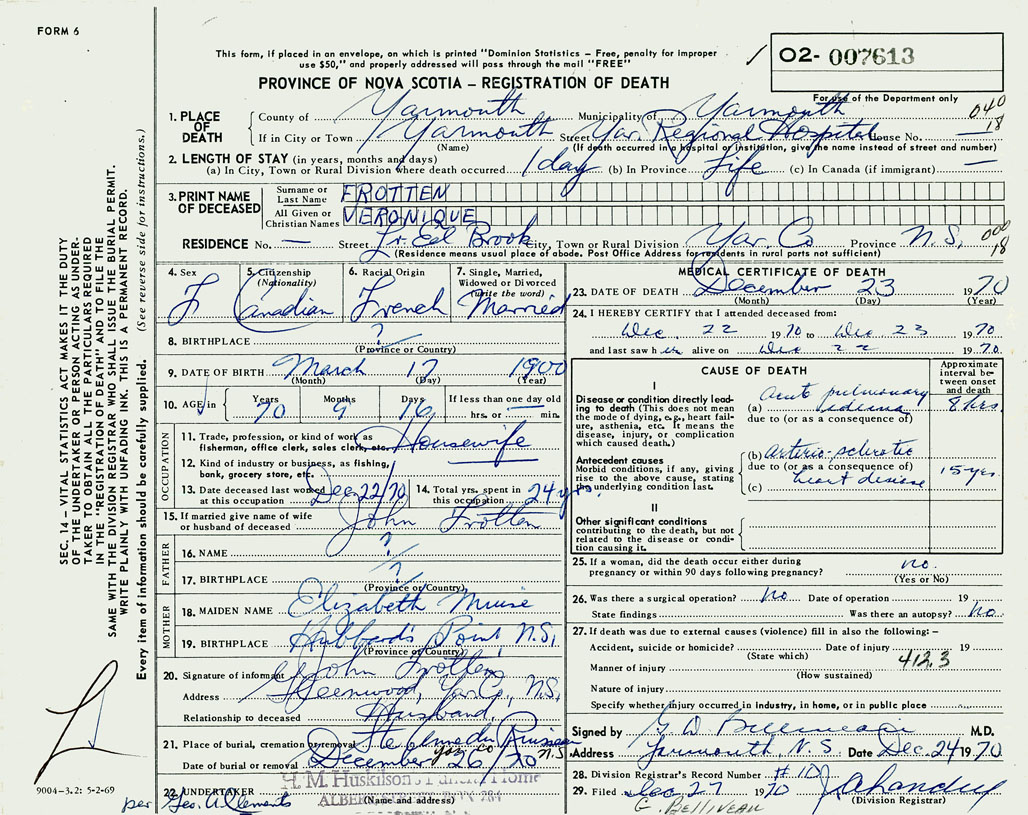 FORM 6
This form, if placed in an envelope, on which is printed "Dominion Statistics – Free, penalty for improper
use $50," and properly addressed will pass through the mail "FREE"
O2- 007613
For use of the Department only
PROVINCE OF NOVA SCOTIA – REGISTRATION OF DEATH
040
18
1. PLACE OF DEATH
County of Yarmouth Municipality of Yarmouth
If in City or Town Yarmouth Street Yar. Regional Hospital House No. —
(Name) (If death occurred in a hospital or institution, give the name instead of street and number)
2. LENGTH OF STAY (in years, months and days)
(a) In City, Town or Rural Division where death occurred 1 day (b) In Province Life (c) In Canada (if immigrant) —
3. PRINT NAME OF DECEASED
Surname or Last Name FROTTEN
All Given or Christian Names VERONIQUE
RESIDENCE No. — Street Lr. Eel Brook City, Town or Rural Division Yar. Co Province N.S.
(Residence means usual place of abode. Post Office Address for residents in rural parts not sufficient)
4. Sex F
5. Citizenship (Nationality) Canadian
6. Racial Origin French
7. Single, Married, Widowed or Divorced (write the word) Married
8. BIRTHPLACE ?
(Province or Country)
9. DATE OF BIRTH March 17 1900
(Month) (Day) (Year)
10. AGE in Years 70 Months 9 Days 16 If less than one day old
hrs. or — min.
OCCUPATION
11. Trade, profession, or kind of work as
fisherman, office clerk, sales clerk, etc. Housewife
12. Kind of industry or business, as fishing,
bank, grocery store, etc. —
13. Date deceased last worked at this occupation Dec 22/70
14. Total yrs. spent in this occupation 24 yrs.
15. If married give name of wife
or husband of deceased John Frotten
FATHER
16. NAME ?
17. BIRTHPLACE ?
(Province or Country)
MOTHER
18. MAIDEN NAME Elizabeth Muise
19. BIRTHPLACE Hubbard's Point, N.S.
(Province or Country)
20. Signature of informant John Frotten
Address Gleenwood, Yar. Co., N.S.
Relationship to deceased Husband
21. Place of burial, cremation or removal Ste Anne du Ruisseau
Yar. Co N.S.
Date of burial or removal December 26/70
22. UNDERTAKER H. M. Huskilson Funeral Home
(Name and address)
per Geo. A Clements
MEDICAL CERTIFICATE OF DEATH
23. DATE OF DEATH December 23 1970
(Month) (Day) (Year)
24. I HEREBY CERTIFY that I attended deceased from:
Dec 22 1970 to Dec 23 1970
and last saw her alive on Dec 22 1970
CAUSE OF DEATH
Approximate interval between onset and death
I
Disease or condition directly leading to death (This does not
mean the mode of dying, e.g., heart failure, asthenia, etc. It means the
disease, injury, or complication
which caused death.)
(a) Acute pulmonary edema 8 hrs
due to (or as a consequence of)
Antecedent causes
Morbid conditions, if any, giving
rise to the above condition, stating
the underlying condition last.
(b) Arterio-sclerotic
due to (or as a consequence of)
heart disease 15 yrs
(c)
II
Other significant conditions
contributing to the death, but not
related to the disease or condition causing it.
25. If a woman, did the death occur either during
pregnancy or within 90 days following pregnancy? no.
(Yes or No)
26. Was there a surgical operation? no Date of operation 19
State findings Was there an autopsy? no.
27. If death was due to external causes (violence) fill in also the following: –
Accident, suicide or homicide? Date of injury 19
(State which)
412.3
Manner of injury
(How sustained)
Nature of injury
Specify whether injury occurred in industry, in home, or in public place
Signed by G. D. Belliveau M.D.
Address Yarmouth N.S. Date Dec. 24 1970
28. Division Registrar's Record Number
29. Filed Dec 27 1970
(Division Registrar)
G. BELLIVEAU
SEC. 14 – VITAL STATISTICS ACT MAKES IT THE DUTY
OF THE UNDERTAKER OR PERSON ACTING AS UNDER-
TAKER TO OBTAIN ALL THE PARTICULARS REQUIRED
IN THE "REGISTRATION OF DEATH" AND TO FILE THE
SAME WITH THE DIVISION REGISTRAR WHO SHALL ISSUE THE BURIAL PERMIT.
WRITE PLAINLY WITH UNFADING INK. THIS IS A PERMANENT RECORD.
Every item of information should be carefully supplied. (See reverse side for instructions.)
9004–3.2: 5-2-69